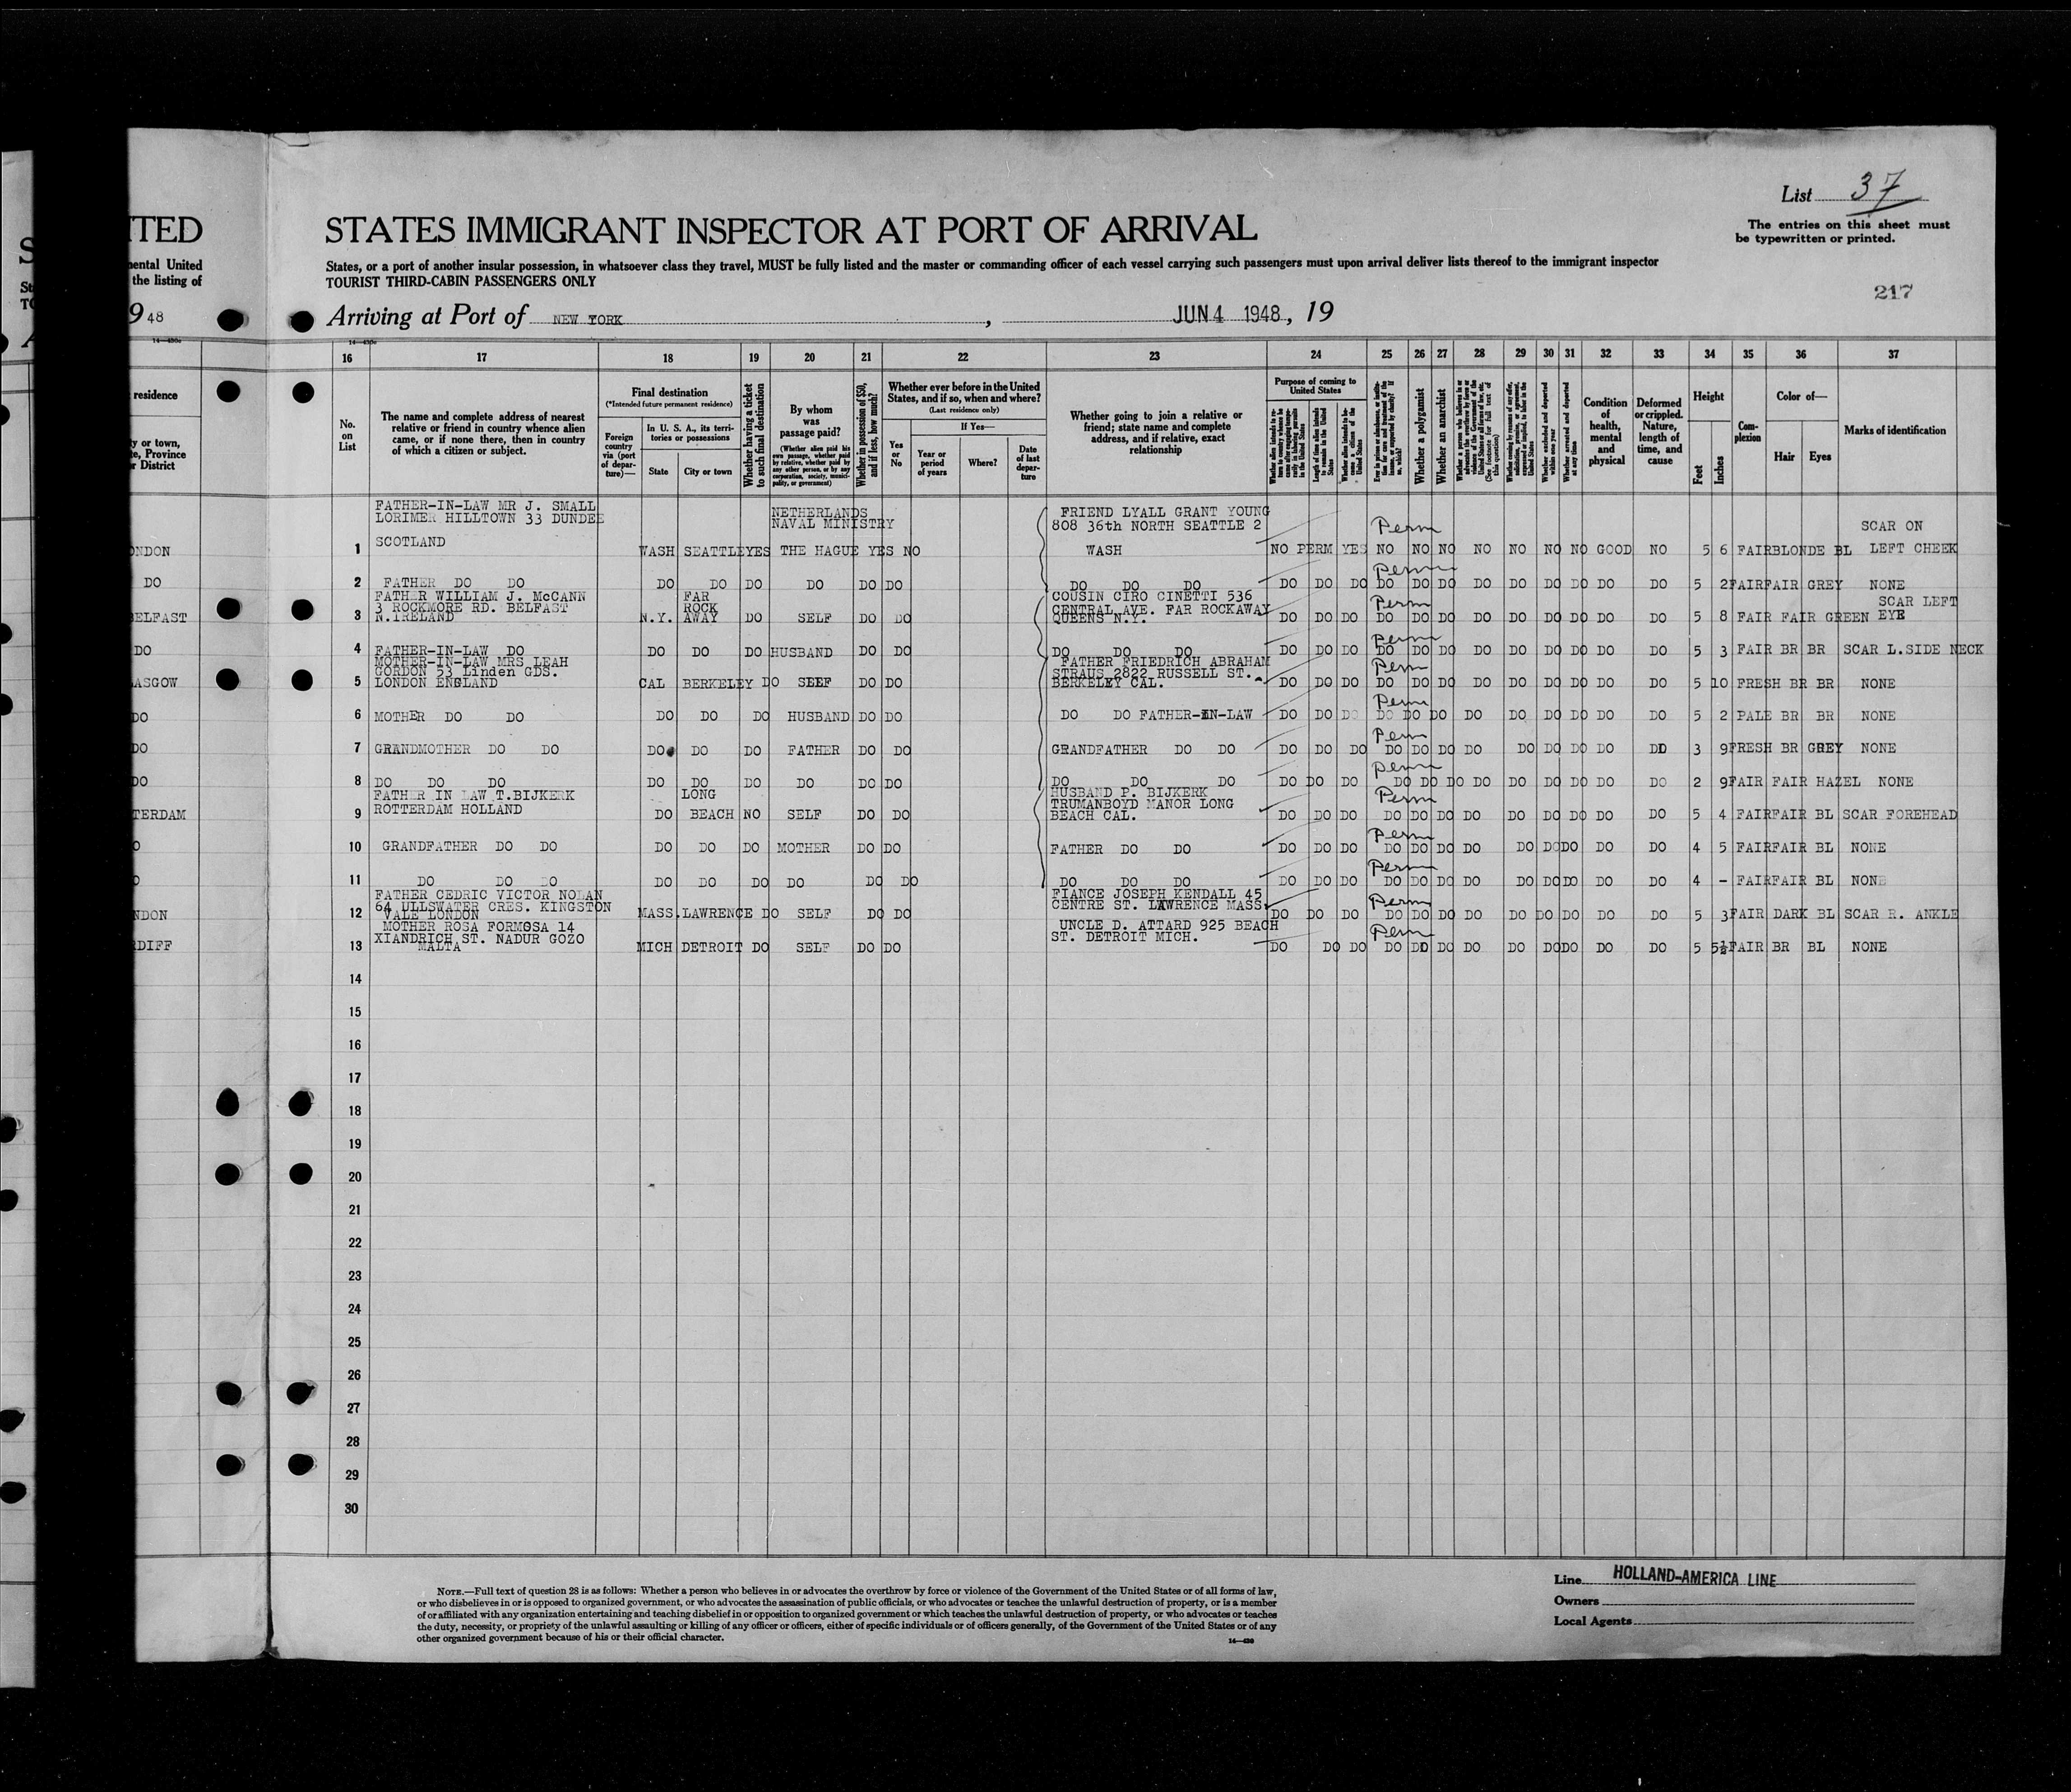 List 37
The entries on this sheet must
be typewritten or printed.
217
TED
STATES IMMIGRANT INSPECTOR AT PORT OF ARRIVAL
ental United
the listing of
States, or a port of another insular possession, in whatsoever class they travel, MUST be fully listed and the master or commanding officer of each vessel carrying such passengers must upon arrival deliver lists thereof to the immigrant inspector
TOURIST THIRD-CABIN PASSENGERS ONLY
9 48
Arriving at Port of NEW YORK, JUN 4 1948, 19
16 17 18 19 20 21 22 23 24 25 26 27 28 29 30 31 32 33 34 35 36 37
residence
y or town,
te, Province
r District
No. on List
The name and complete address of nearest relative or friend in country whence alien came, or if none there, then in country of which a citizen or subject.
Final destination
(*Intended future permanent residence)
Foreign country via (port of departure)—
In U. S. A., its territories or possessions
State
City or town
Whether having a ticket to such final destination
By whom was passage paid?
(Whether alien paid his own passage, whether paid by relative, whether paid by any other person, or by any corporation, society, municipality, or government)
Whether in possession of $50, and if less, how much?
Whether ever before in the United States, and if so, when and where?
(Last residence only)
Yes or No
If Yes—
Year or period of years
Where?
Date of last departure
Whether going to join a relative or friend; state name and complete address, and if relative, exact relationship
Purpose of coming to United States
Length of time alien intends to remain in the United States
Whether a polygamist
Whether an anarchist
Whether arrested and deported at any time
Condition of health, mental and physical
Deformed or crippled. Nature, length of time, and cause
Height
Feet
Inches
Complexion
Color of—
Hair
Eyes
Marks of identification
FATHER-IN-LAW MR J. SMALL NETHERLANDS FRIEND LYALL GRANT YOUNG
LORIMER HILLTOWN 33 DUNDEE NAVAL MINISTRY 808 36th NORTH SEATTLE 2 Perm SCAR ON
SCOTLAND
ONDON 1 WASH SEATTLE YES THE HAGUE YES NO WASH NO PERM YES NO NO NO NO NO NO NO GOOD NO 5 6 FAIR BLONDE BL LEFT CHEEK
Perm
DO 2 FATHER DO DO DO DO DO DO DO DO DO DO DO DO DO DO DO DO DO DO DO DO DO DO DO 5 2 FAIR FAIR GREY NONE
FATHER WILLIAM J. McCANN FAR COUSIN CIRO CINETTI 536 Perm SCAR LEFT
3 ROCKMORE RD. BELFAST ROCK CENTRAL AVE. FAR ROCKAWAY
ELFAST 3 N.IRELAND N.Y. AWAY DO SELF DO DO QUEENS N.Y. DO DO DO DO DO DO DO DO DO DO DO DO 5 8 FAIR FAIR GREEN EYE
Perm
DO 4 FATHER-IN-LAW DO DO DO DO HUSBAND DO DO DO DO DO DO DO DO DO DO DO DO DO DO DO DO DO 5 3 FAIR BR BR SCAR L.SIDE NECK
MOTHER-IN-LAW MRS LEAH FATHER FRIEDRICH ABRAHAM Perm
GORDON 53 Linden GDS. STRAUS 2822 RUSSELL ST.
ASGOW 5 LONDON ENGLAND CAL BERKELEY DO SELF DO DO BERKELEY CAL. DO DO DO DO DO DO DO DO DO DO DO DO 5 10 FRESH BR BR NONE
Perm
DO 6 MOTHER DO DO DO DO DO HUSBAND DO DO DO DO FATHER-IN-LAW DO DO DO DO DO DO DO DO DO DO DO DO 5 2 PALE BR BR NONE
Perm
DO 7 GRANDMOTHER DO DO DO DO DO FATHER DO DO GRANDFATHER DO DO DO DO DO DO DO DO DO DO DO DO DO DD 3 9 FRESH BR GREY NONE
Perm
DO 8 DO DO DO DO DO DO DO DO DO DO DO DO DO DO DO DO DO DO DO DO DO DO DO DO 2 9 FAIR FAIR HAZEL NONE
FATHER IN LAW T.BIJKERK LONG HUSBAND P. BIJKERK Perm
ROTTERDAM HOLLAND TRUMANBOYD MANOR LONG
TERDAM 9 DO BEACH NO SELF DO DO BEACH CAL. DO DO DO DO DO DO DO DO DO DO DO DO 5 4 FAIR FAIR BL SCAR FOREHEAD
Perm
O 10 GRANDFATHER DO DO DO DO DO MOTHER DO DO FATHER DO DO DO DO DO DO DO DO DO DO DO DO DO DO 4 5 FAIR FAIR BL NONE
Perm
O 11 DO DO DO DO DO DO DO DO DO DO DO DO DO DO DO DO DO DO DO DO DO DO DO DO 4 - FAIR FAIR BL NONE
FATHER CEDRIC VICTOR NOLAN FIANCE JOSEPH KENDALL 45
64 ULLSWATER CRES. KINGSTON CENTRE ST. LAWRENCE MASS. Perm
NDON 12 VALE LONDON MASS. LAWRENCE DO SELF DO DO DO DO DO DO DO DO DO DO DO DO DO DO 5 3 FAIR DARK BL SCAR R. ANKLE
MOTHER ROSA FORMOSA 14 UNCLE D. ATTARD 925 BEACH Perm
XIANDRICH ST. NADUR GOZO ST. DETROIT MICH.
RDIFF 13 MALTA MICH DETROIT DO SELF DO DO DO DO DO DO DO DO DO DO DO DO DO DO 5 5½ FAIR BR BL NONE
14
15
16
17
18
19
20
21
22
23
24
25
26
27
28
29
30
NOTE.—Full text of question 28 is as follows: Whether a person who believes in or advocates the overthrow by force or violence of the Government of the United States or of all forms of law,
or who disbelieves in or is opposed to organized government, or who advocates the assassination of public officials, or who advocates or teaches the unlawful destruction of property, or is a member
of or affiliated with any organization entertaining and teaching disbelief in or opposition to organized government or which teaches the unlawful destruction of property, or who advocates or teaches
the duty, necessity, or propriety of the unlawful assaulting or killing of any officer or officers, either of specific individuals or of officers generally, of the Government of the United States or of any
other organized government because of his or their official character.
Line HOLLAND-AMERICA LINE
Owners
Local Agents